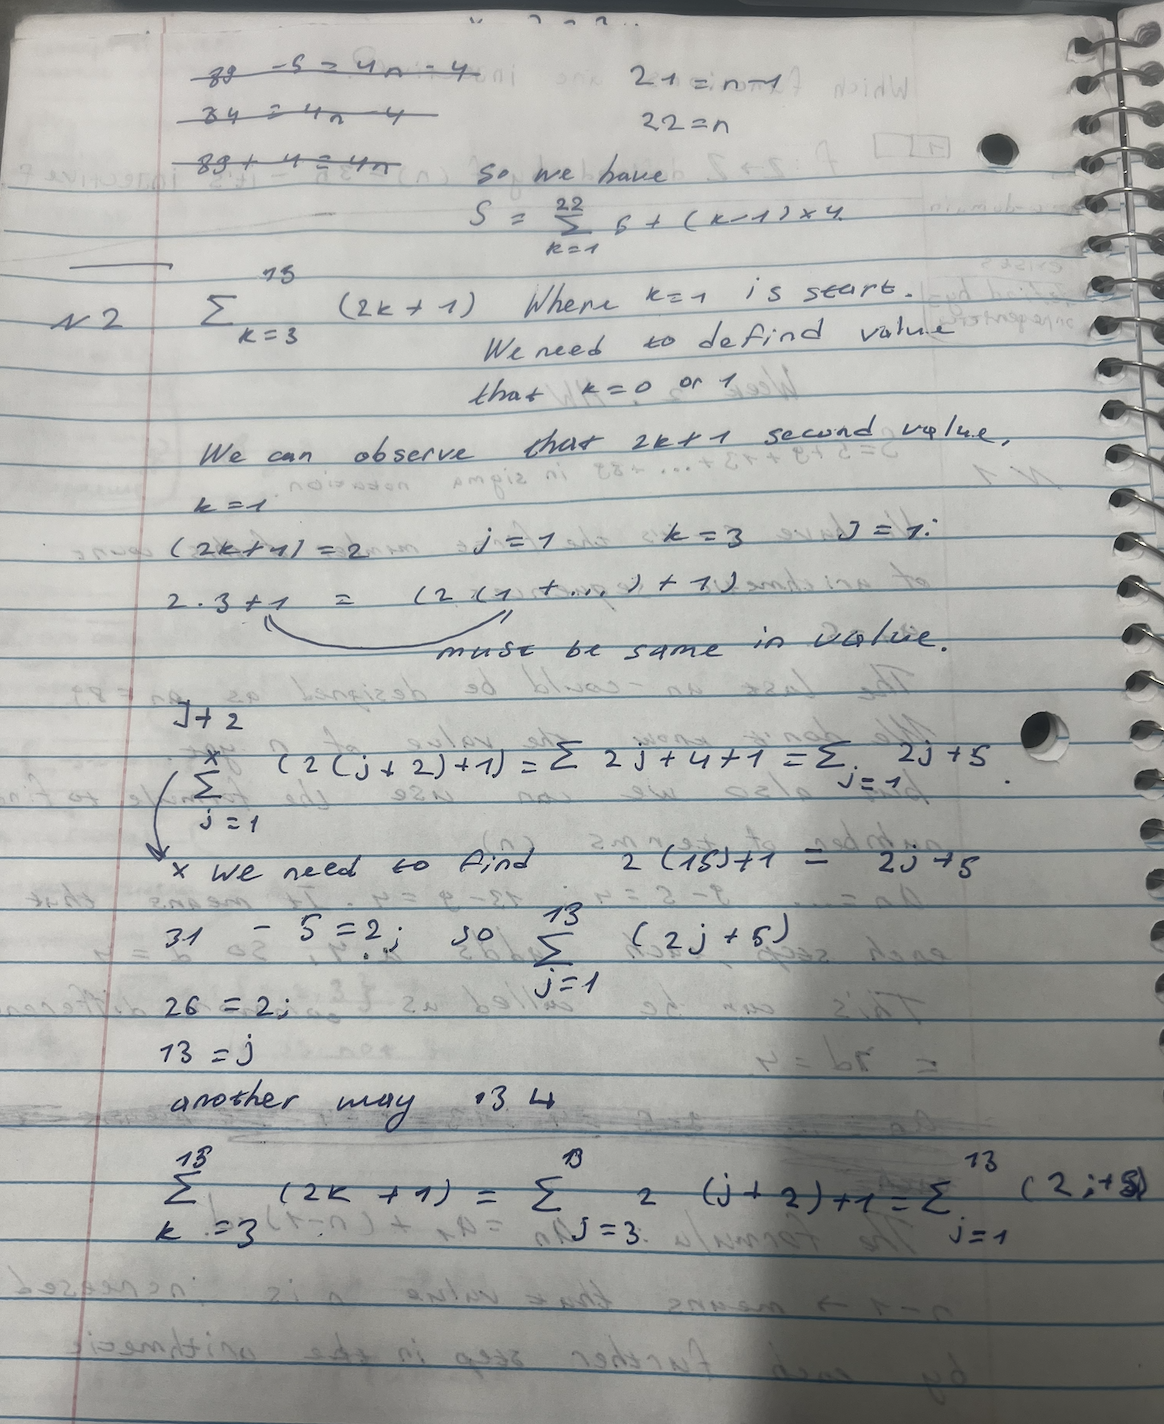 89 - 5 = 4n - 4
84 = 4n - 4
89 + 4 = 4n
21 = n-1
22 = n
So we have
S = 22 Σ k=1 5 + (k-1) × 4
N2 15 Σ k=3 (2k + 1) Where k=1 is start.
We need to defind value
that k=0 or 1
We can observe that 2k+1 second value,
k=1
(2k+1) = 2 j=1 k=3 J=1:
2·3+1 = (2(1 + ...) + 1)
must be same in value.
J+2
x Σ j=1 (2(j+2)+1) = Σ 2j+4+1 = Σ j=1 2j+5
x we need to find 2(15)+1 = 2j+5
31 - 5 = 2j so 13 Σ j=1 (2j+5)
26 = 2j
13 = j
another way
15 Σ k=3 (2k+1) = 13 Σ j=3 2(j+2)+1 = 13 Σ j=1 (2j+5)